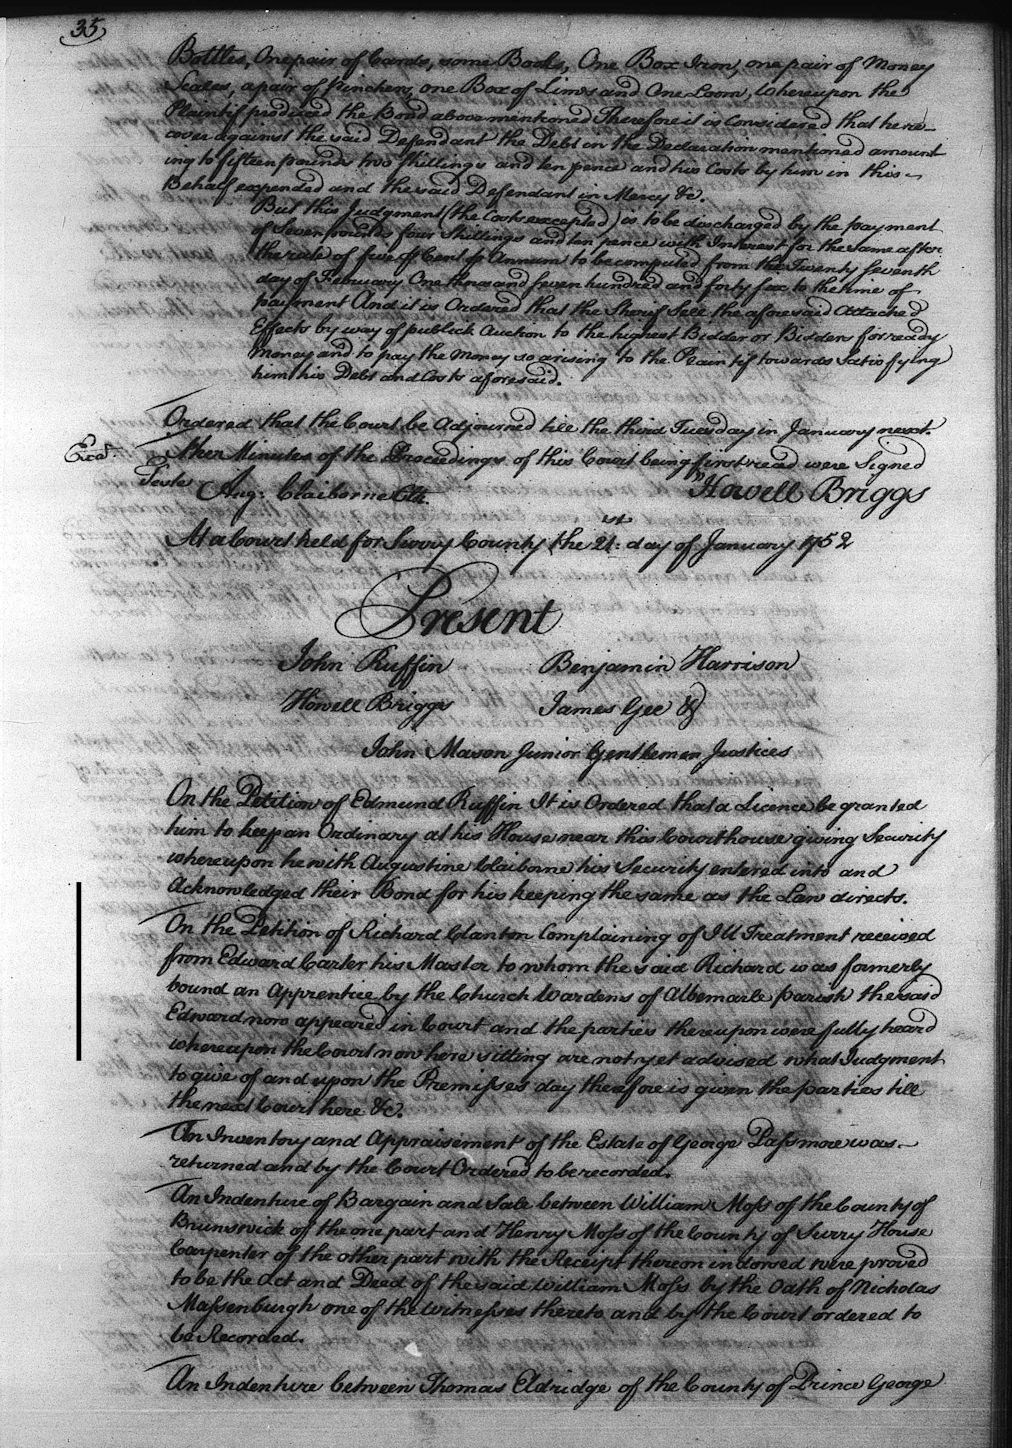 35
Bottles, One pair of Cards, some Books, One Box Iron, one pair of Money
Scales, a pair of Pinchers, one Box of Lims and One Loom, Whereupon the
Plaintif produced the Bond abovementioned Therefore it is Considered that he re-
cover against the said Defendant the Debt in the Declaration mentioned amount
ing to fifteen pounds two Shillings and ten pence and his Costs by him in this
Behalf expended and the said Defendant in Mercy &c.
But this Judgment (the Costs excepted) is to be discharged by the payment
of Seven pounds four Shillings and ten pence with Interest for the same after
the rate of five P Cent P Annum to be computed from the Twenty Seventh
day of February One thousand seven hundred and forty six to the time of
payment And it is Ordered that the Sherif Sell the aforesaid Attached
Effects by way of publick Auction to the highest Bidder or Bidders for ready
Money and to pay the Money so arising to the Plaintif towards Satisfying
him his Debt and Costs aforesaid.
Ordered that the Court be Adjourned till the third Tuesday in January next.
Exad.
then Minutes of the Proceedings of this Court being first read were Signed
Teste Aug: Claiborne Clk. Howell Briggs
At a Court held for Surry County the 21:st day of January 1752
Present
John Ruffin Benjamin Harrison
Howell Briggs James Gee &
John Mason Junior Gentlemen Justices
On the Petition of Edmund Ruffin It is Ordered that a Licence be granted
him to keep an Ordinary at his House near this Courthouse giving Security
whereupon he with Augustine Claiborne his Security entered into and
Acknowledged their Bond for his keeping the same as the Law directs.
On the Petition of Richard Clanton Complaining of Ill Treatment received
from Edward Carter his Master to whom the said Richard was formerly
bound an Apprentice by the Church Wardens of Albemarle parish the said
Edward now appeared in Court and the parties thereupon were fully heard
whereupon the Court now here sitting are not yet advised what Judgment
to give of and upon the Premisses day therefore is given the parties till
the next Court here &c.
An Inventory and Appraisement of the Estate of George Passmore was
returned and by the Court Ordered to be recorded.
An Indenture of Bargain and Sale between William Moss of the County of
Brunswick of the one part and Henry Moss of the County of Surry House
Carpenter of the other part with the Receipt thereon indorsed were proved
to be the Act and Deed of the said William Moss by the Oath of Nicholas
Massenburgh one of the Witnesses thereto and by the Court ordered to
be Recorded.
An Indenture between Thomas Eldridge of the County of Prince George